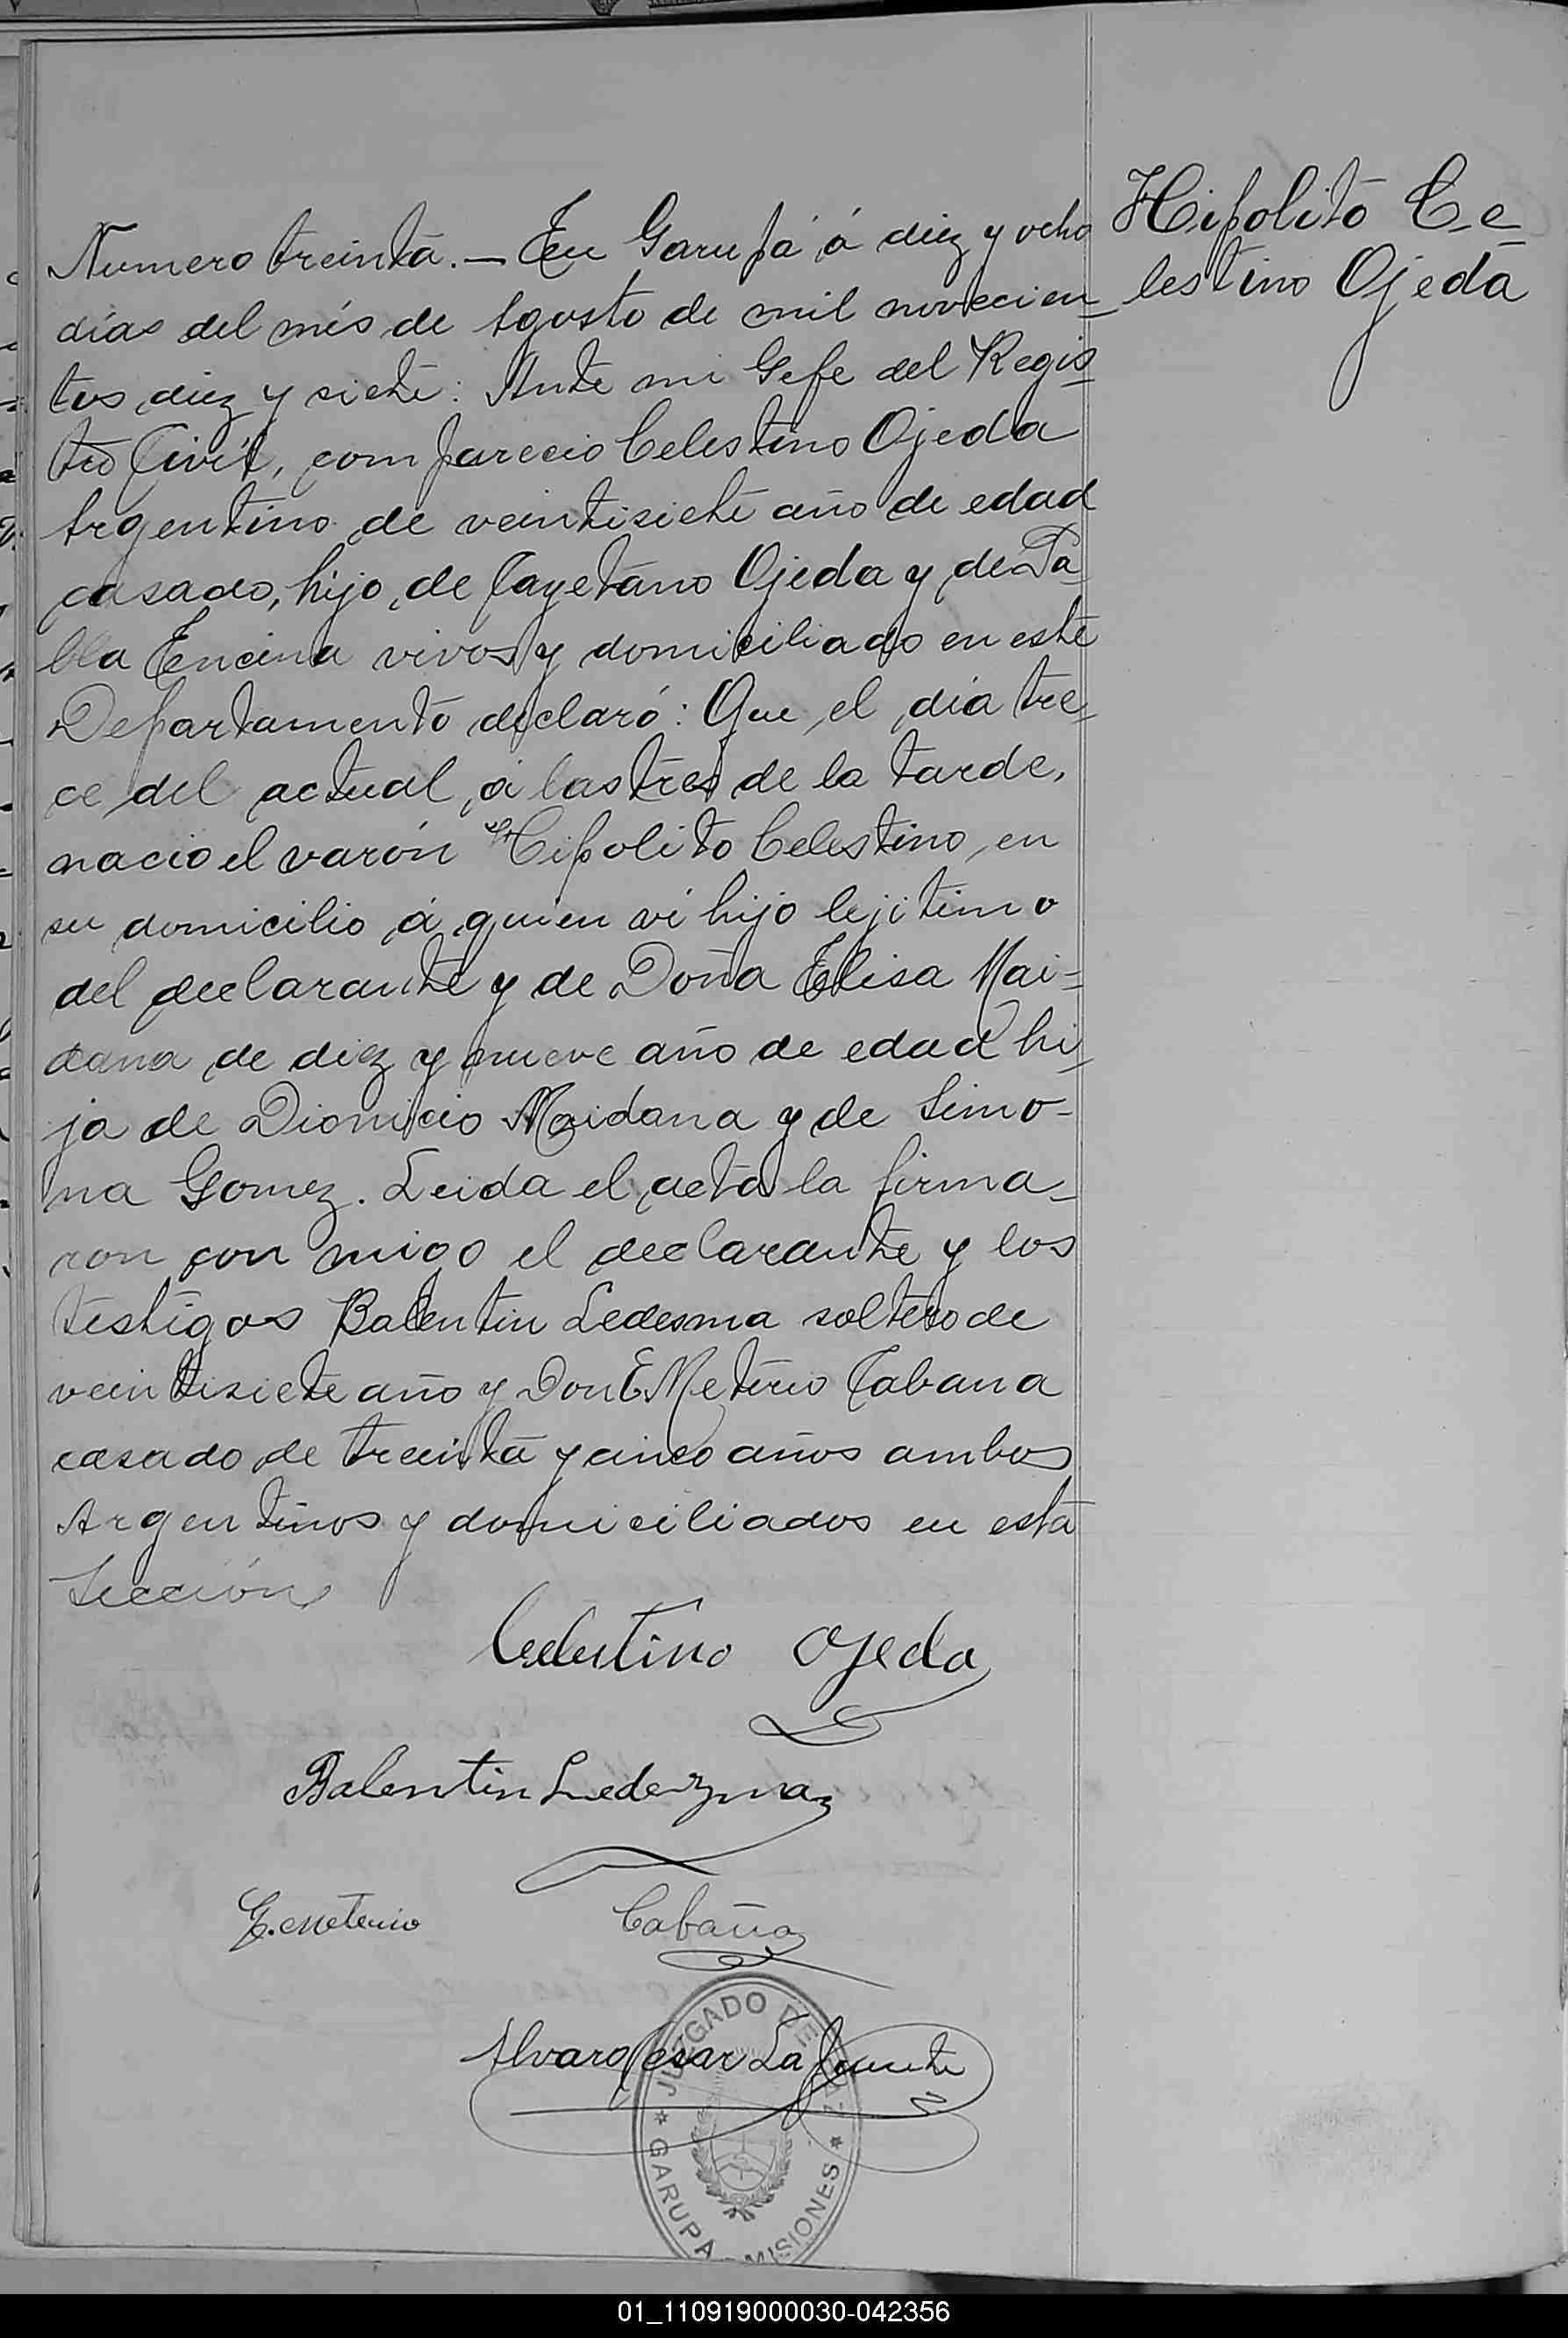 Hipolito Ce_
lestino Ojeda
Numero treinta. — En Garupá á diez y ocho
días del més de Agosto de mil novecien_
tos diez y siete: Ante mi Gefe del Regis_
tro Civil, comparecio Celestino Ojeda
Argentino de veintisiete año de edad
casado, hijo de Cayetano Ojeda y de Pa_
bla Encina vivos y domiciliado en este
Departamento declaró: Que el día tre_
ce del actual á las tres de la tarde,
nacio el varón Hipolito Celestino en
su domicilio á quien vi hijo lejitimo
del declarante y de Doña Elisa Mai=
dana de diez y nueve año de edad hi_
ja de Dionicio Maidana y de Simo-
na Gomez. Leida el acta la firma_
ron con migo el declarante y los
testigos Balentin Ledesma soltero de
veintisiete año y Don EMeterio Cabana
casado de treinta y cinco años ambos
Argentinos y domiciliados en esta
Sección
Celestino Ojeda
Balentin Ledezma
E. Meterio Cabaña
Alvaro Cesar Lafuente
JUZGADO DE PAZ
* GARUPA - MISIONES *
01_110919000030-042356